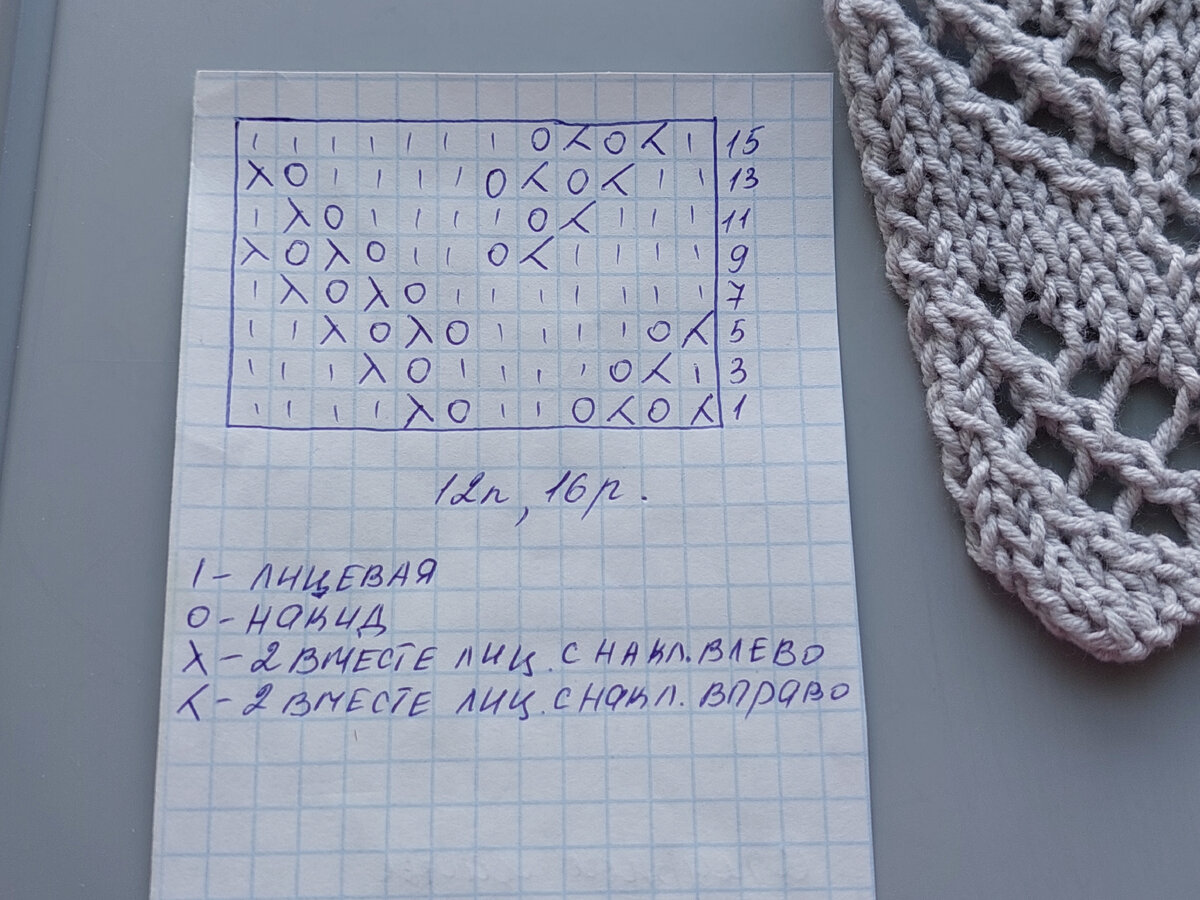 I I I I I I I O ㄑ O ㄑ I 15
λ O I I I I O ㄑ O ㄑ I I 13
I λ O I I I I O ㄑ I I I 11
λ O λ O I I O ㄑ I I I I 9
I λ O λ O I I I I I I I 7
I I λ O λ O I I I I O ㄑ 5
I I I λ O I I I I O ㄑ I 3
I I I I λ O I I O ㄑ O ㄑ 1
12п, 16р.
I - ЛИЦЕВАЯ
O - НАКИД
λ - 2 ВМЕСТЕ ЛИЦ. С НАКЛ. ВЛЕВО
ㄑ - 2 ВМЕСТЕ ЛИЦ. С НАКЛ. ВПРАВО